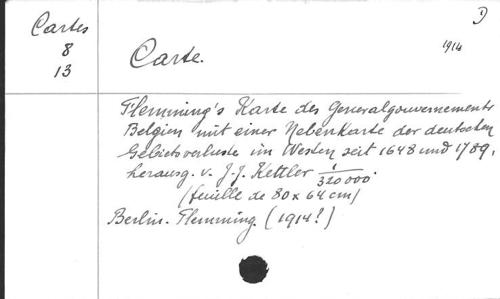 Cartes
8
13
1914
Carte.
Flemming's Karte des Generalgouvernements
Belgien mit einer Nebenkarte der deutschen
Gebietsverluste im Westen seit 1648 und 1789,
herausg. v. J.J. Kettler 1/320000.
(feuille de 80 x 64 cm)
Berlin. Flemming. (1914!)